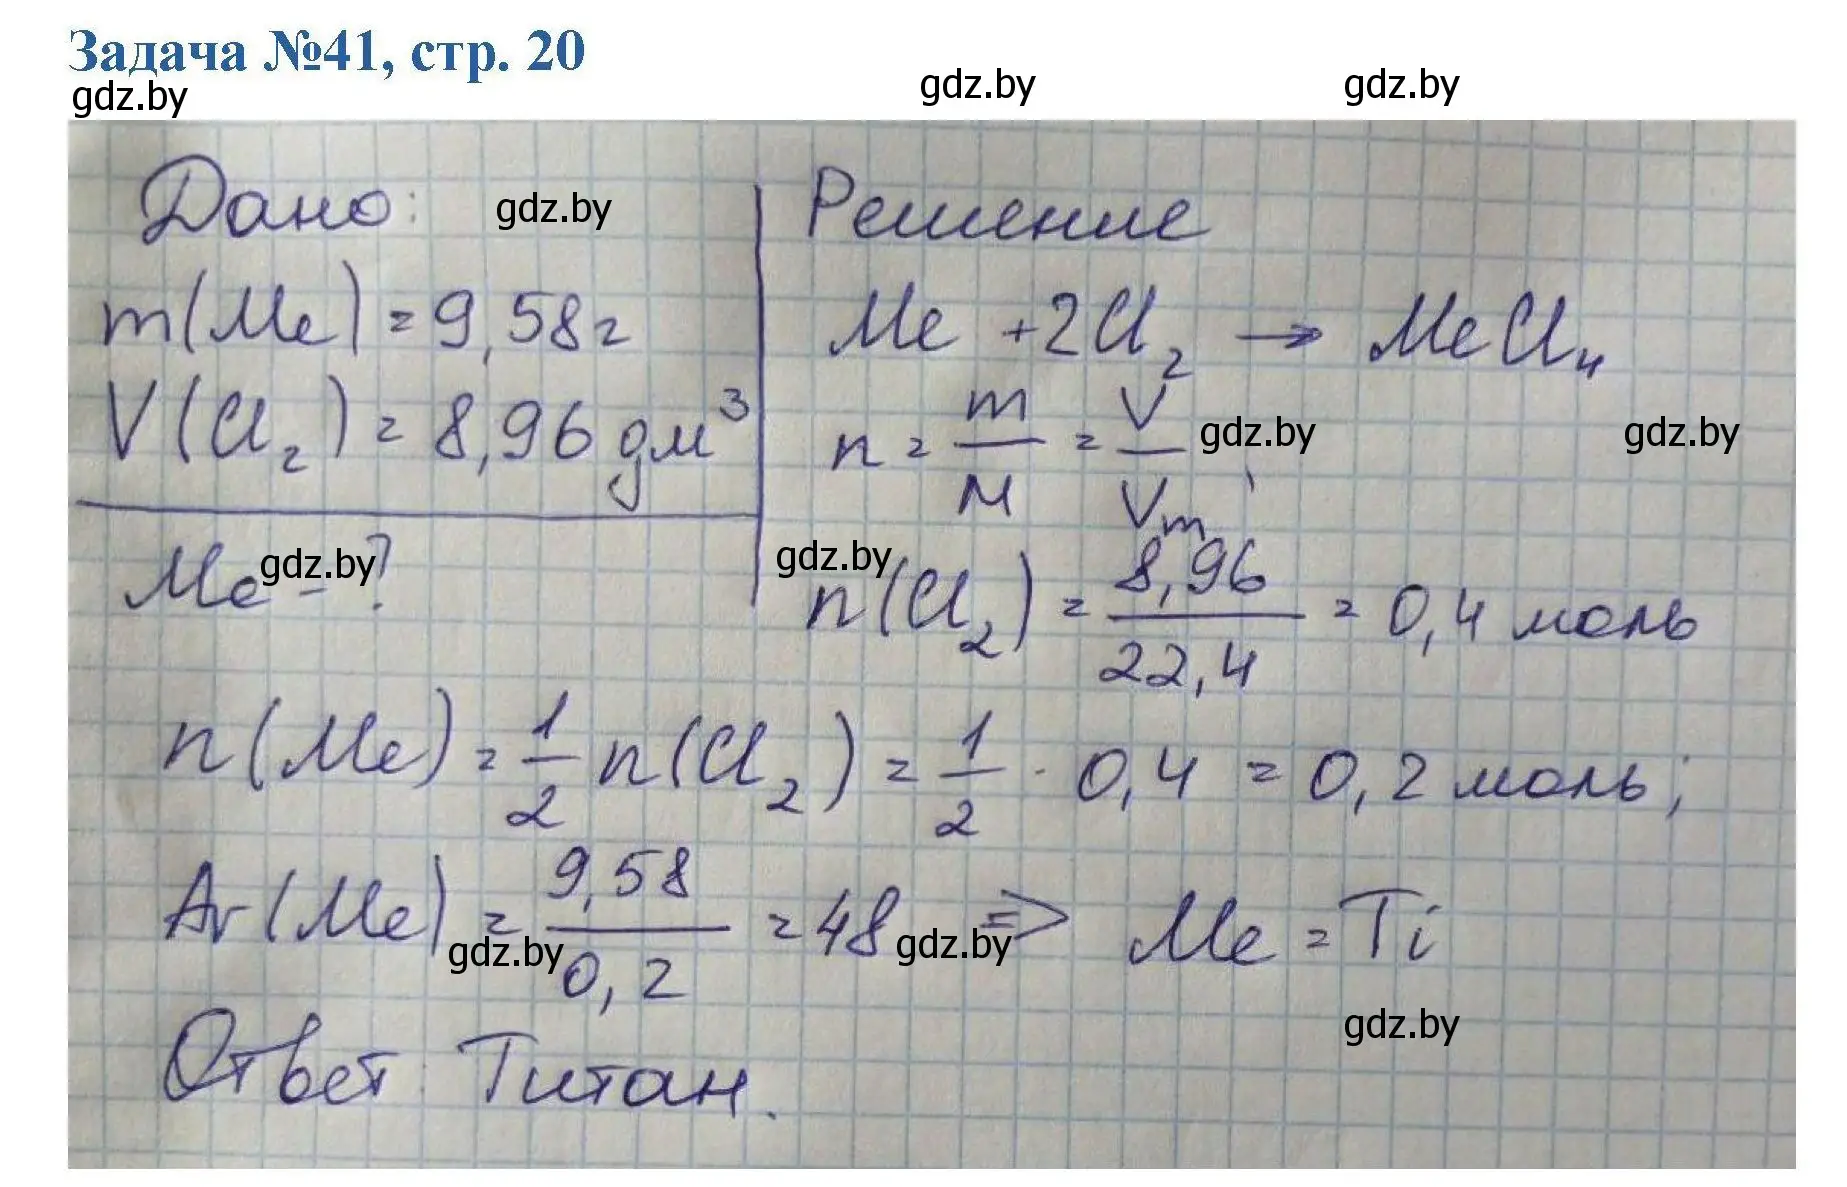 Задача №41, стр. 20
gdz.by gdz.by gdz.by
Дано: gdz.by
m(Me) = 9,58г
V(Cl₂) = 8,96 дм³
Me - ?
gdz.by
Решение
Me + 2Cl₂ → MeCl₄
n = m/M = V/Vm, gdz.by gdz.by
gdz.by
n(Cl₂) = 8,96/22,4 = 0,4 моль
n(Me) = 1/2 n(Cl₂) = 1/2 · 0,4 = 0,2 моль;
Ar(Me) = 9,58/0,2 = 48 => Me = Ti
gdz.by gdz.by
gdz.by
Ответ: Титан.